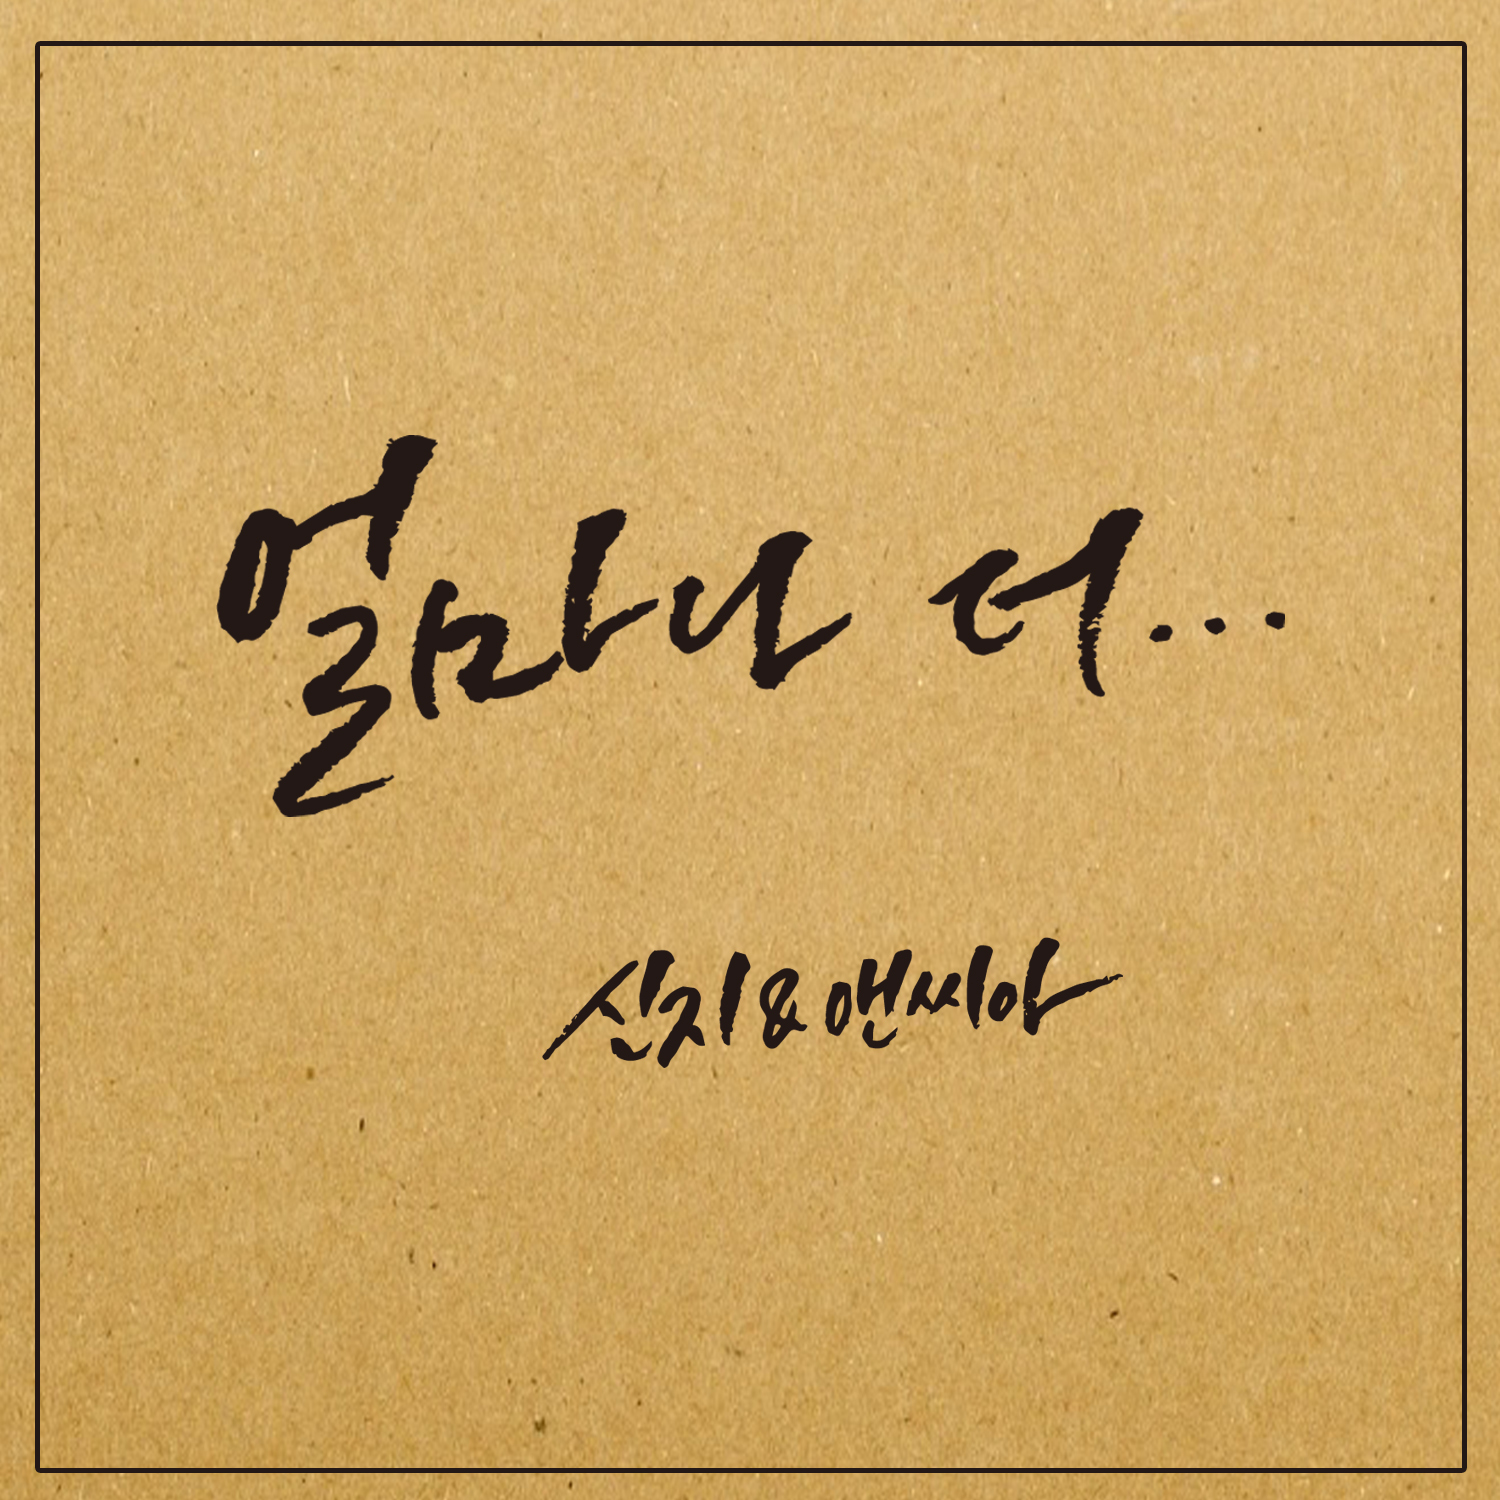 얼마나 더...
신지&앤씨아